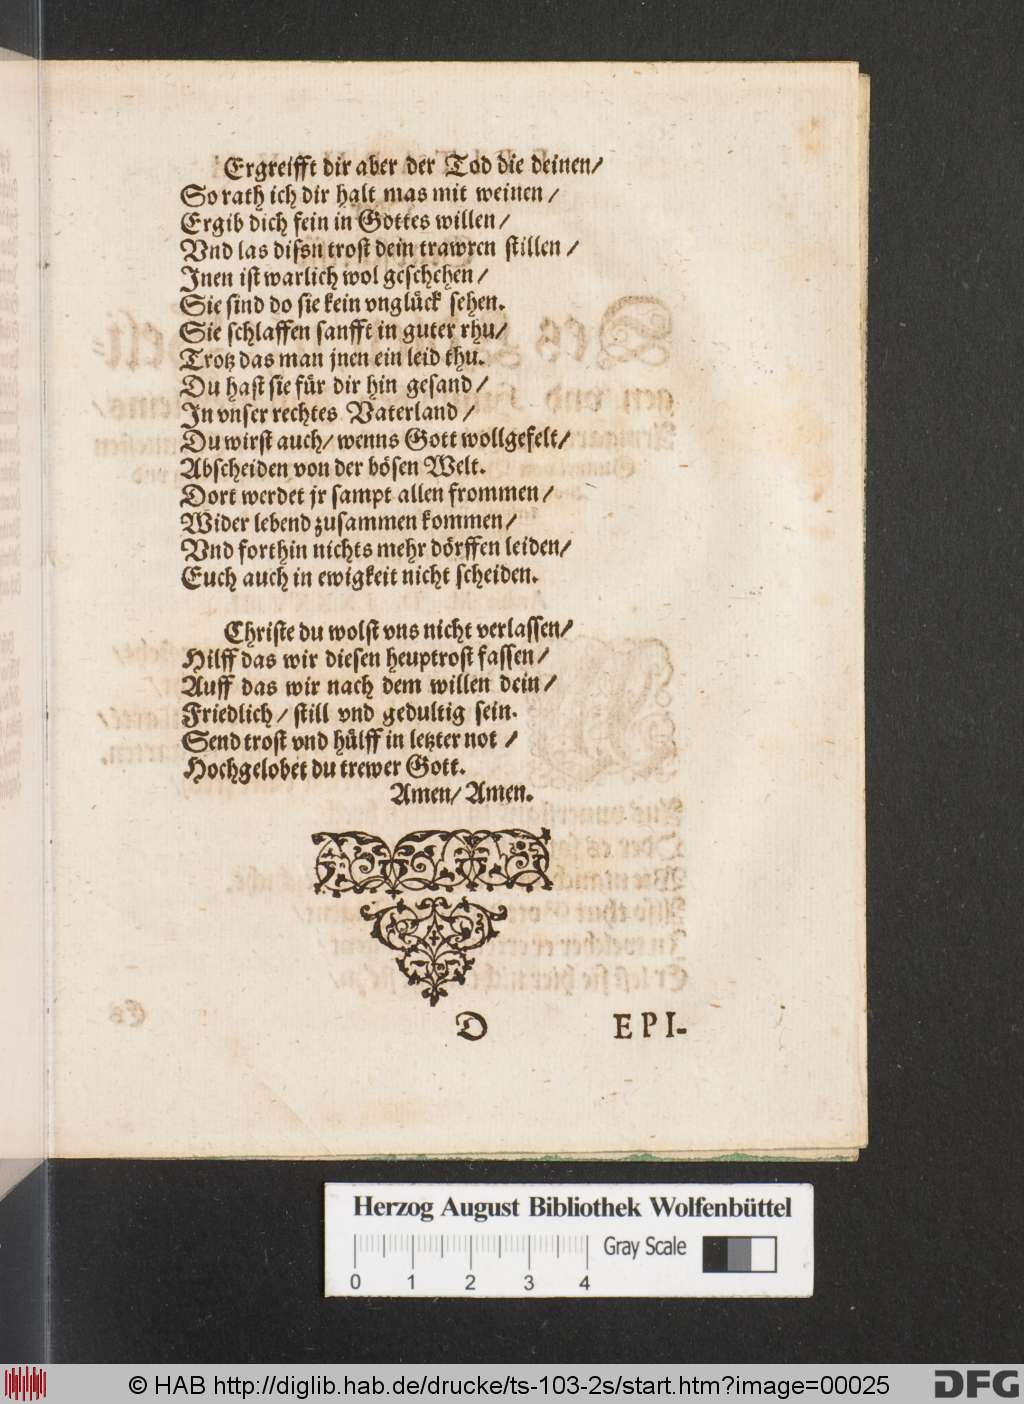 Ergreifft dir aber der Tod die deinen/
So rath ich dir halt mas mit weinen /
Ergib dich fein in Gottes willen/
Vnd las disen trost dein trawren stillen /
Jnen ist warlich wol geschehen/
Sie sind do sie kein vnglück sehen.
Sie schlaffen sanfft in guter rhu/
Trotz das man jnen ein leid thu.
Du hast sie für dir hin gesand/
Jn vnser rechtes Vaterland /
Du wirst auch/ wenns Gott wollgefelt/
Abscheiden von der bösen Welt.
Dort werdet jr sampt allen frommen/
Wider lebend zusammen kommen/
Vnd forthin nichts mehr dörffen leiden/
Euch auch in ewigkeit nicht scheiden.
Christe du wolst vns nicht verlassen/
Hilff das wir diesen heuptrost fassen/
Auff das wir nach dem willen dein/
Friedlich/ still vnd gedultig sein.
Send trost vnd hülff in letzter not /
Hochgelobet du trewer Gott.
Amen/ Amen.
D EPI-
Herzog August Bibliothek Wolfenbüttel
0 1 2 3 4 Gray Scale
© HAB http://diglib.hab.de/drucke/ts-103-2s/start.htm?image=00025 DFG